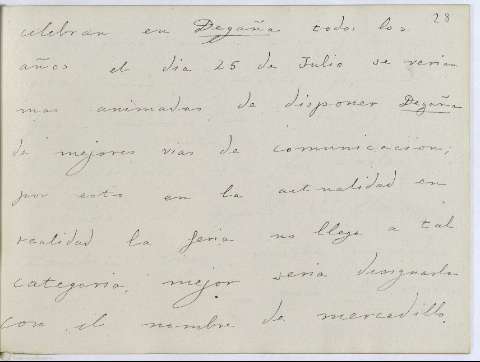 28
celebran en Degaña todos los
años el dia 25 de Julio se verian
mas animadas de disponer Degaña
de mejores vias de comunicacion;
por esto en la actualidad en
realidad la feria no llega a tal
categoria, mejor seria designarla
con el nombre de mercadillo.